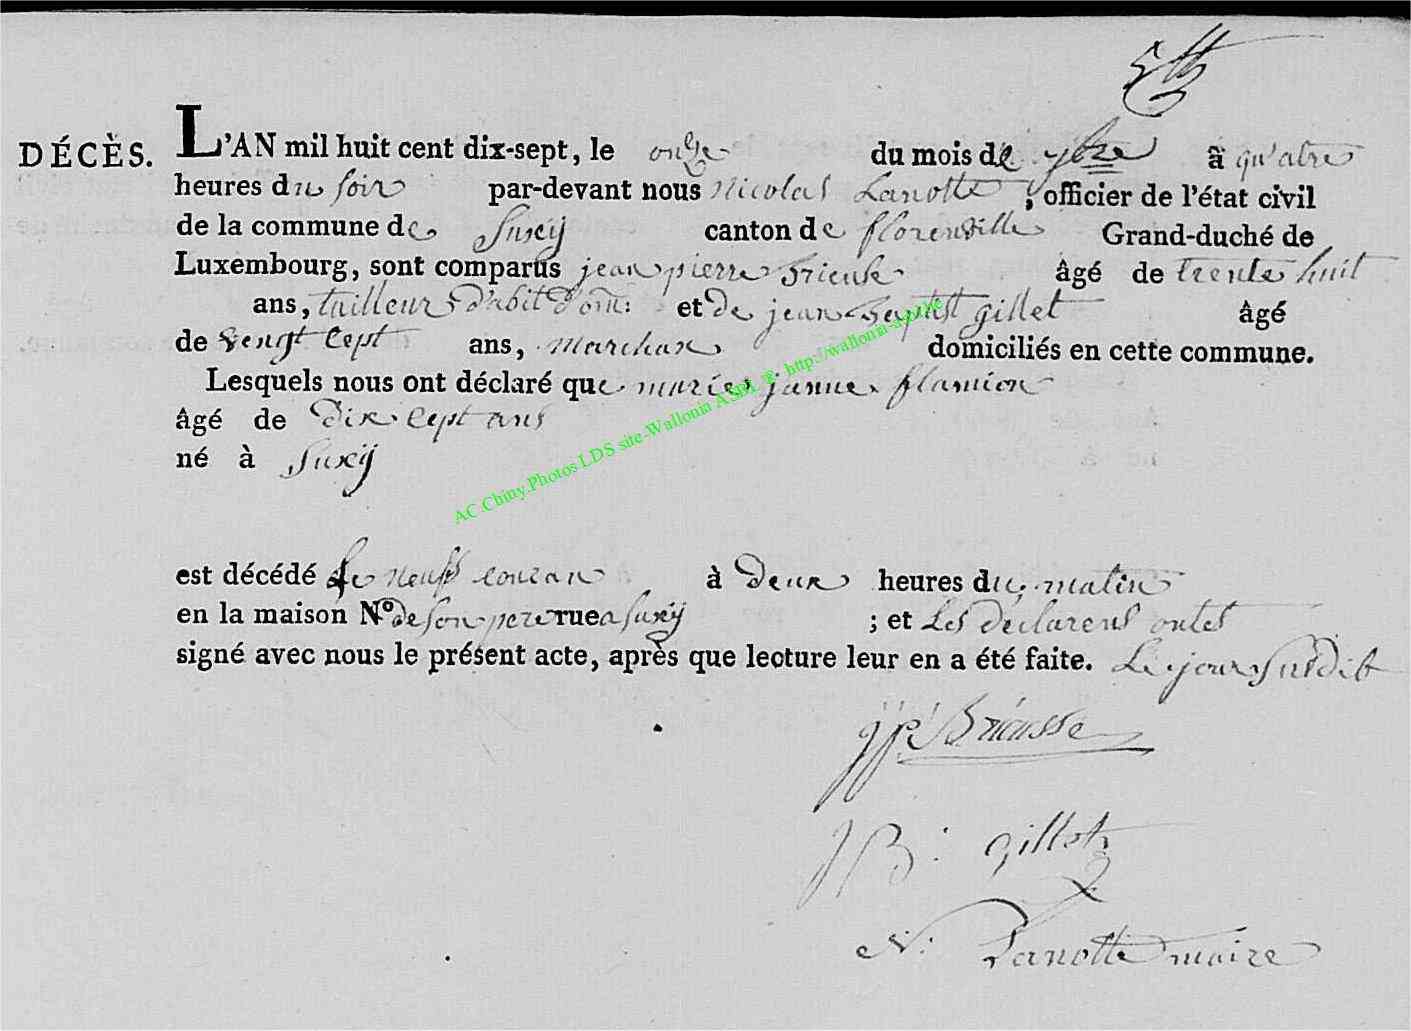 DÉCÈS. L'AN mil huit cent dix-sept, le onze du mois de à qu'atre
heures du soir par-devant nous Nicolas Lanotte, officier de l'état civil
de la commune de Suxÿ canton de florenville Grand-duché de
Luxembourg, sont comparus jean pierre âgé de trente huit
ans, tailleur d'abit d'om: et de jean baptist gillet âgé
de vengt cept ans, marchan domiciliés en cette commune.
Lesquels nous ont déclaré que marie janne flamion
âgé de dix cept ans
né à Suxÿ
AC.Chiny.Photos LDS site-Wallonia ASBL © http://wallonia-asbl.be
est décédé le neuf couran à deux heures du matin
en la maison N° de son pere rue a suxÿ ; et Les déclarens ontes
signé avec nous le présent acte, après que lecture leur en a été faite. Le jour Susdit
jp Briausse
JB: gillet
N: Lanotte maire